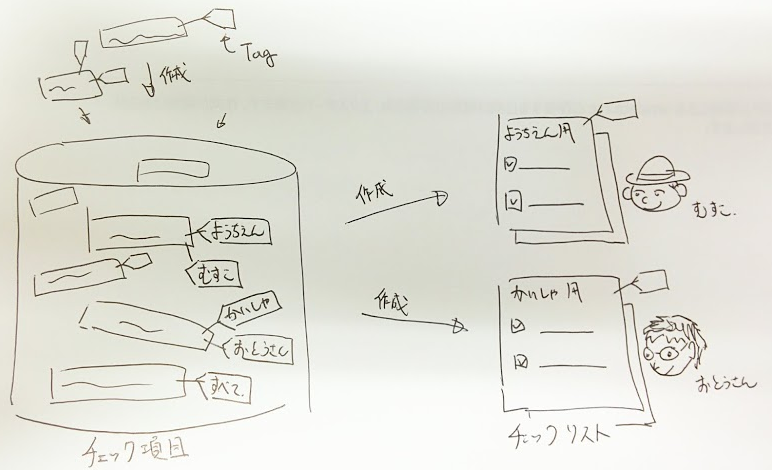 Tag
作成
ようちえん
むすこ
かいしゃ
おとうさん
すべて
チェック項目
作成
作成
ようちえん用
むすこ
かいしゃ用
おとうさん
チェックリスト